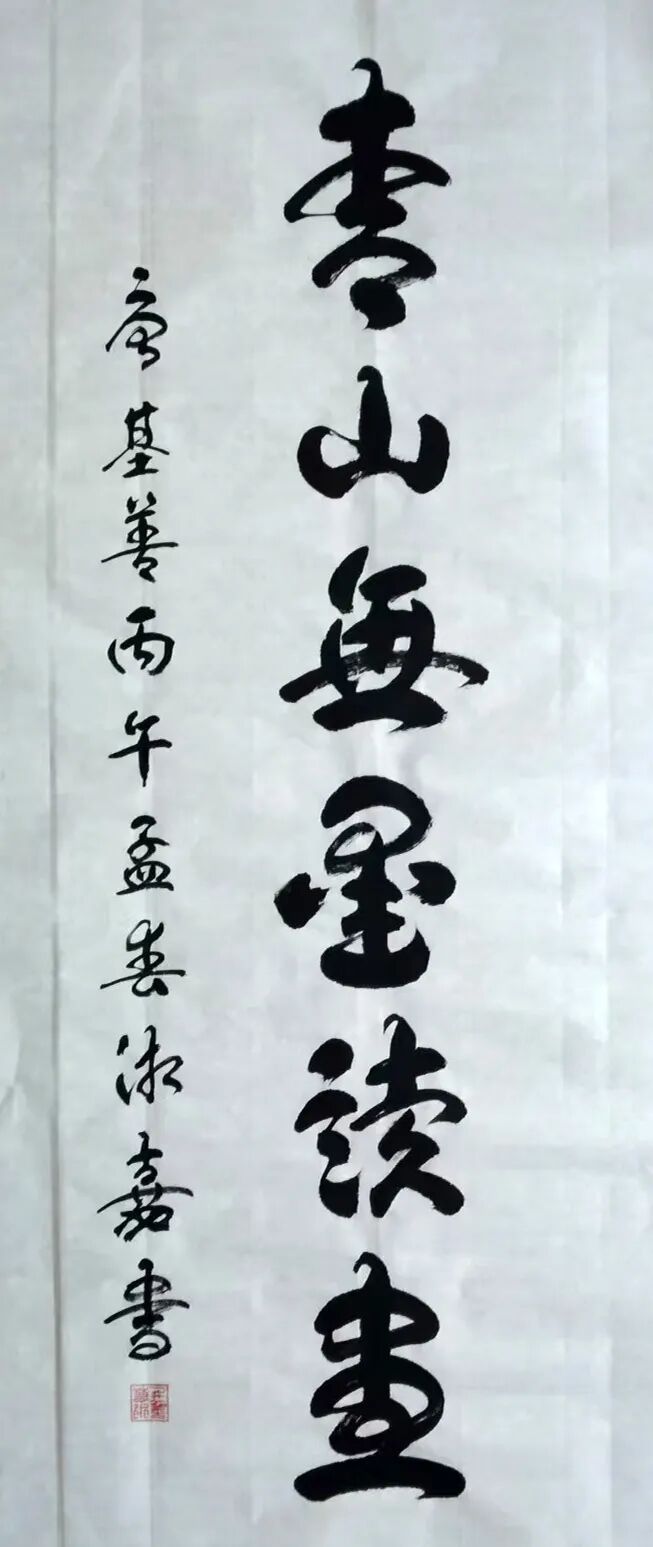 青山無墨讀畫
基善丙午孟春湘嘉書